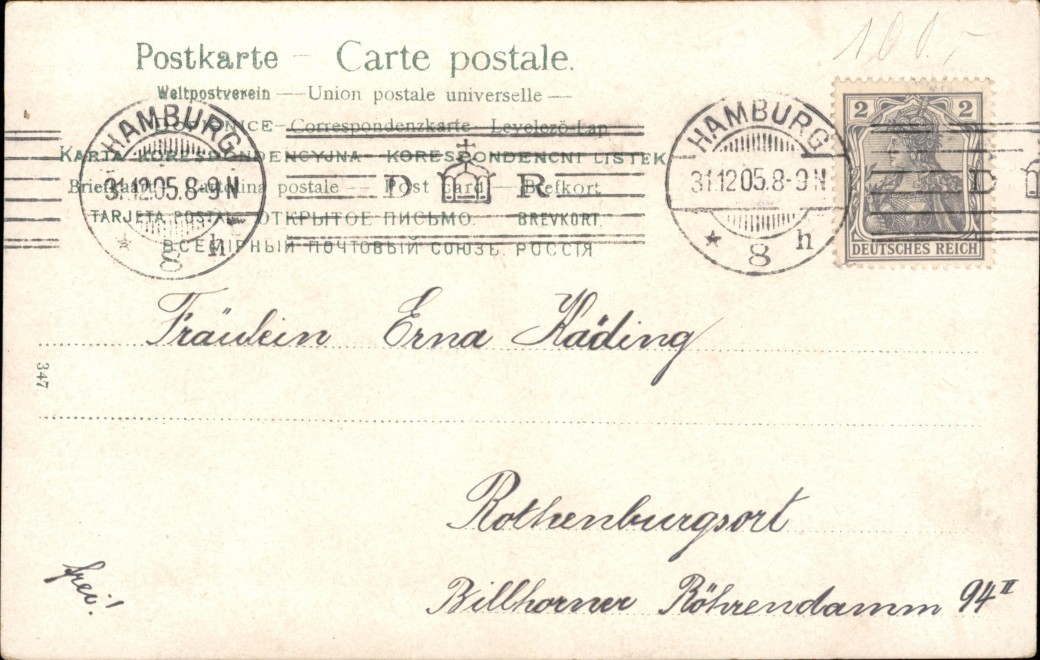 Postkarte — Carte postale.
Weltpostverein — Union postale universelle —
Correspondenzkarte — Levelező-Lap
KARTA KORESPONDENCYJNA — KORESPONDENČNÍ LÍSTEK
Briefkaart — Cartolina postale — Post card — Brefkort
TARJETA POSTAL — ОТКРЫТОЕ ПИСЬМО. BREVKORT.
ВСЕМІРНЫЙ ПОЧТОВЫЙ СОЮЗЪ. РОССІЯ
HAMBURG
31.12.05.8-9N
* 8 h
D R
HAMBURG
31.12.05.8-9N
* 8 h
D
2 2
DEUTSCHES REICH
Fräulein Erna Käding
347
Rothenburgsort
frei!
Billhorner Röhrendamm 94 II